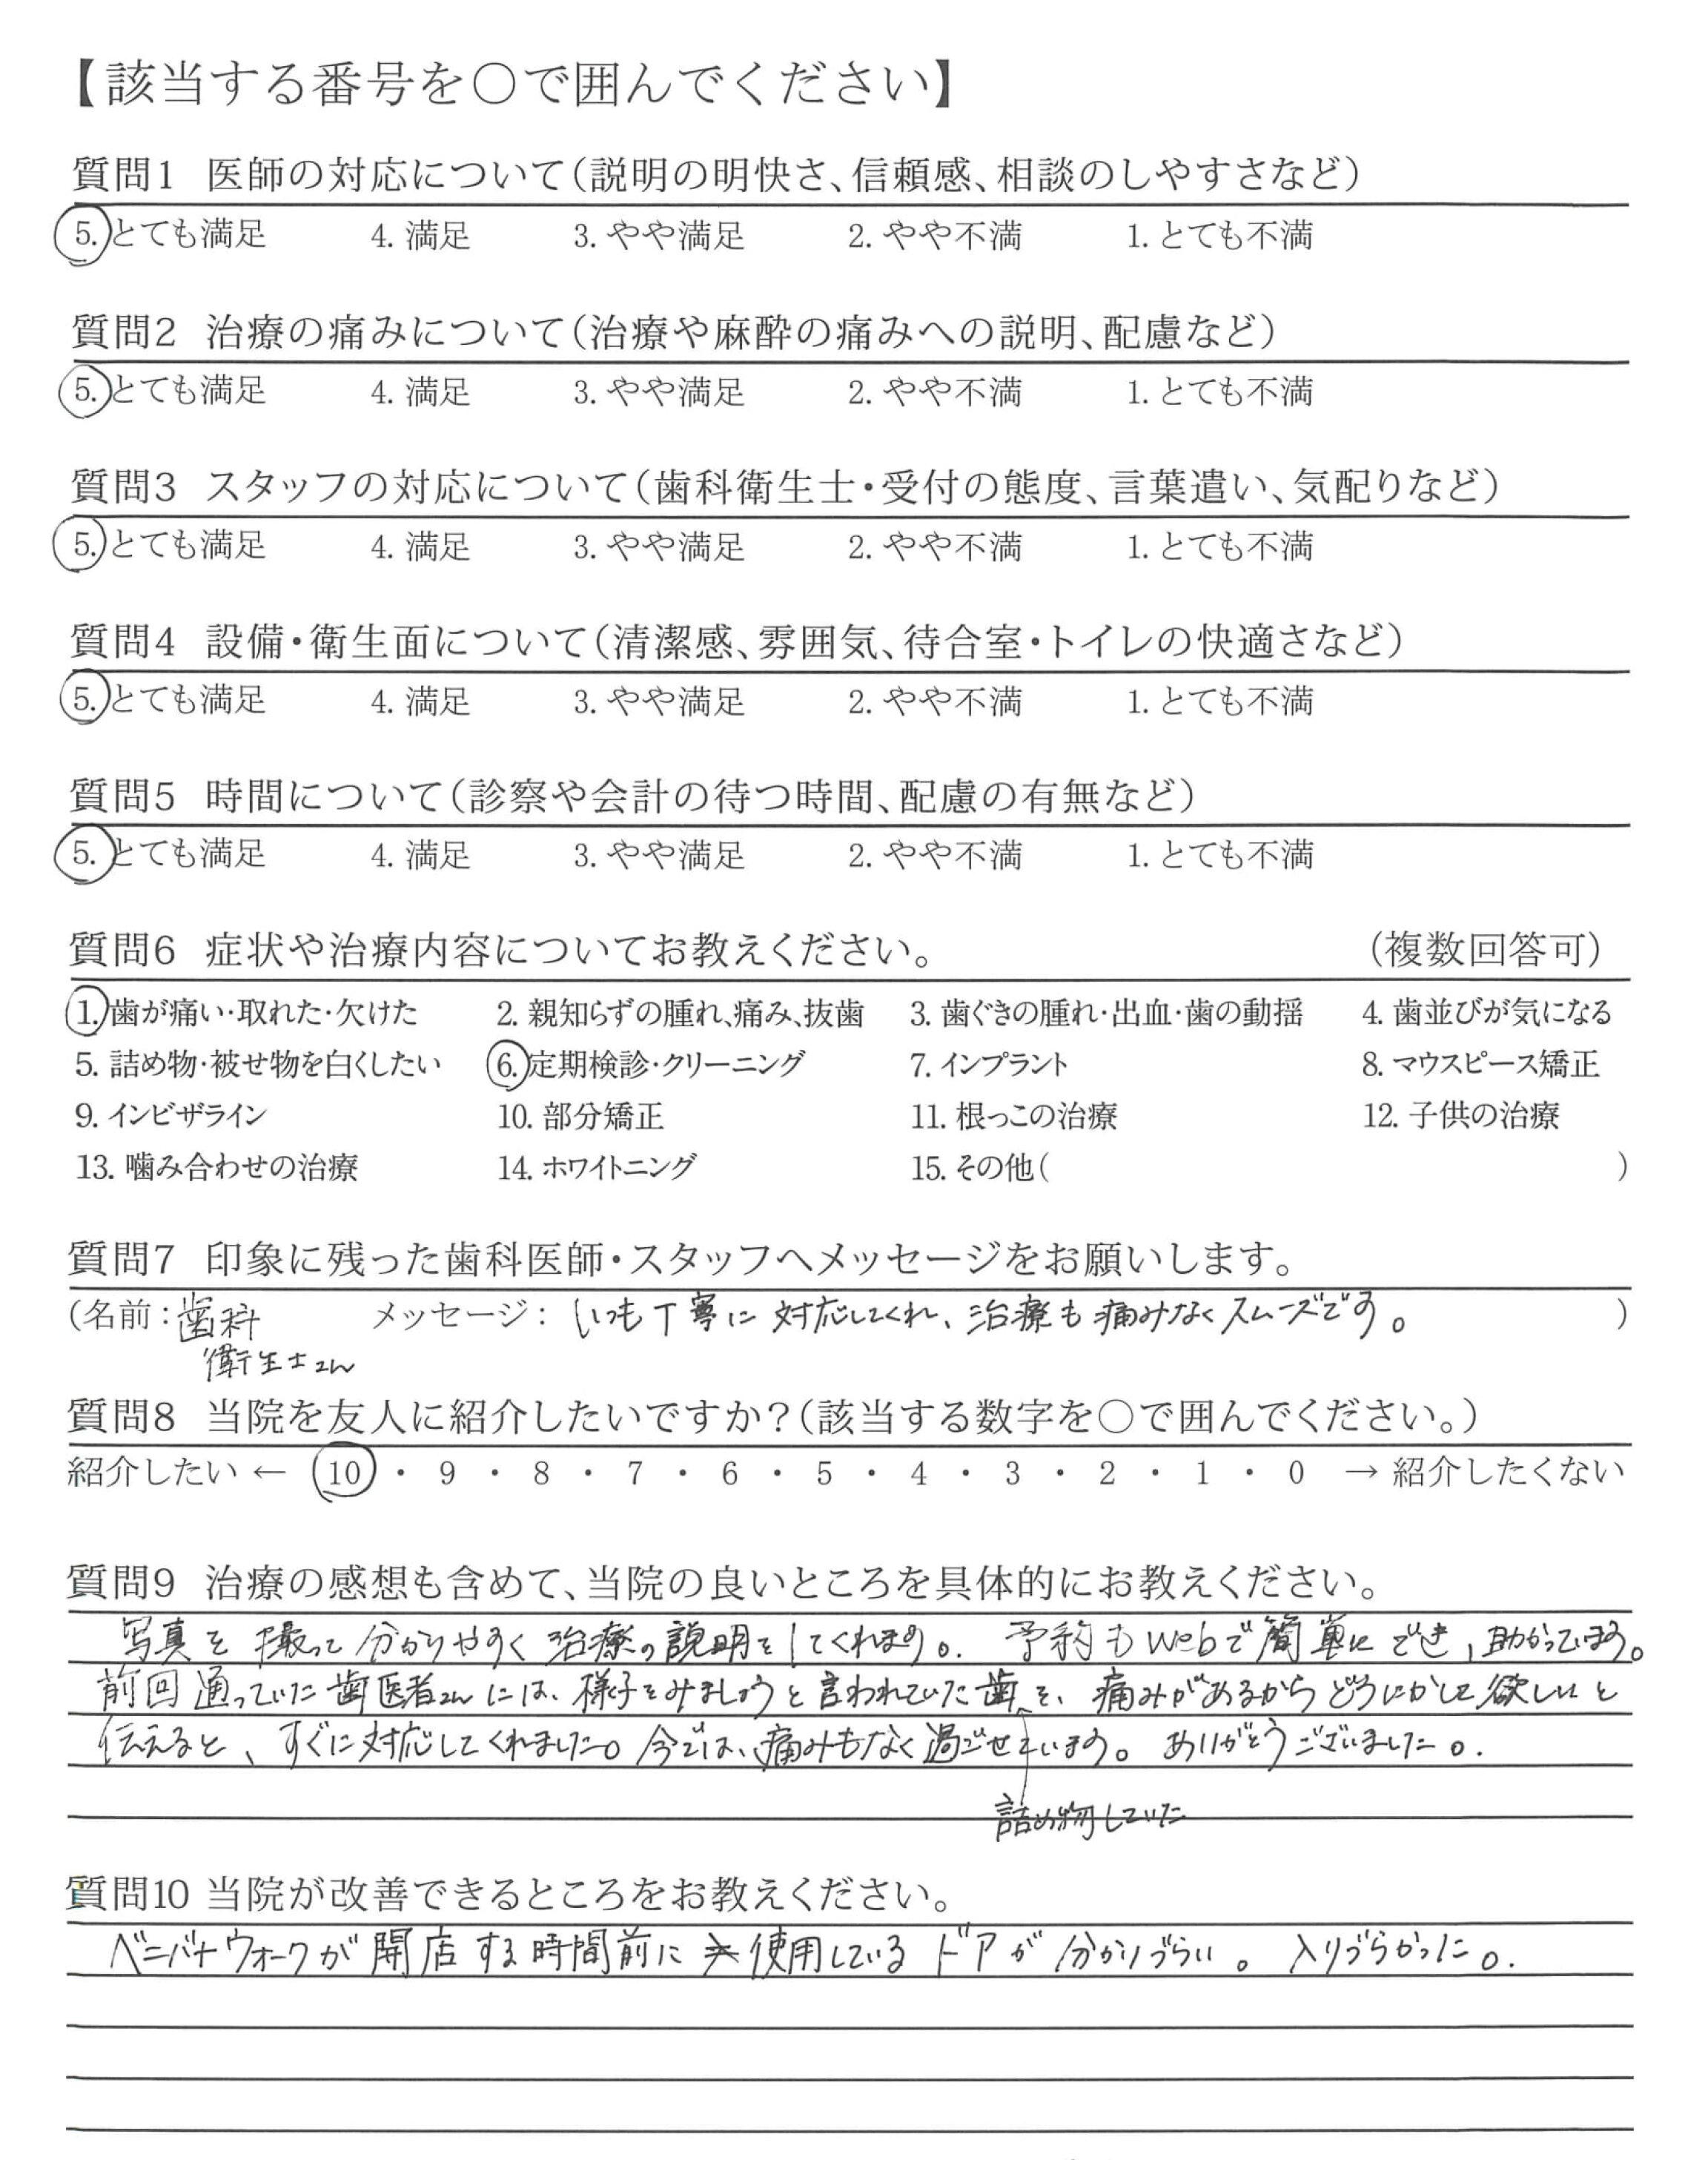 【該当する番号を○で囲んでください】
質問1 医師の対応について(説明の明快さ、信頼感、相談のしやすさなど)
5. とても満足 4. 満足 3. やや満足 2. やや不満 1. とても不満
質問2 治療の痛みについて(治療や麻酔の痛みへの説明、配慮など)
5. とても満足 4. 満足 3. やや満足 2. やや不満 1. とても不満
質問3 スタッフの対応について(歯科衛生士・受付の態度、言葉遣い、気配りなど)
5. とても満足 4. 満足 3. やや満足 2. やや不満 1. とても不満
質問4 設備・衛生面について(清潔感、雰囲気、待合室・トイレの快適さなど)
5. とても満足 4. 満足 3. やや満足 2. やや不満 1. とても不満
質問5 時間について(診察や会計の待つ時間、配慮の有無など)
5. とても満足 4. 満足 3. やや満足 2. やや不満 1. とても不満
質問6 症状や治療内容についてお教えください。 (複数回答可)
1. 歯が痛い・取れた・欠けた 2. 親知らずの腫れ、痛み、抜歯 3. 歯ぐきの腫れ・出血・歯の動揺 4. 歯並びが気になる
5. 詰め物・被せ物を白くしたい 6. 定期検診・クリーニング 7. インプラント 8. マウスピース矯正
9. インビザライン 10. 部分矯正 11. 根っこの治療 12. 子供の治療
13. 噛み合わせの治療 14. ホワイトニング 15. その他( )
質問7 印象に残った歯科医師・スタッフへメッセージをお願いします。
(名前:歯科 メッセージ: いつも丁寧に対応してくれ、治療も痛みなくスムーズです。 )
衛生士さん
質問8 当院を友人に紹介したいですか?(該当する数字を○で囲んでください。)
紹介したい ← 10 ・ 9 ・ 8 ・ 7 ・ 6 ・ 5 ・ 4 ・ 3 ・ 2 ・ 1 ・ 0 → 紹介したくない
質問9 治療の感想も含めて、当院の良いところを具体的にお教えください。
写真を撮って分かりやすく治療の説明をしてくれます。 予約もWebで簡単にでき、助かっています。
前回通っていた歯医者さんには、様子をみましょうと言われていた歯を、痛みがあるからどうにかして欲しいと
伝えると、すぐに対応してくれました。今では、痛みもなく過ごせています。ありがとうございました。
詰め物していた
質問10 当院が改善できるところをお教えください。
ベニバナウォークが開店する時間前に使用しているドアが分かりづらい。 入りづらかった。